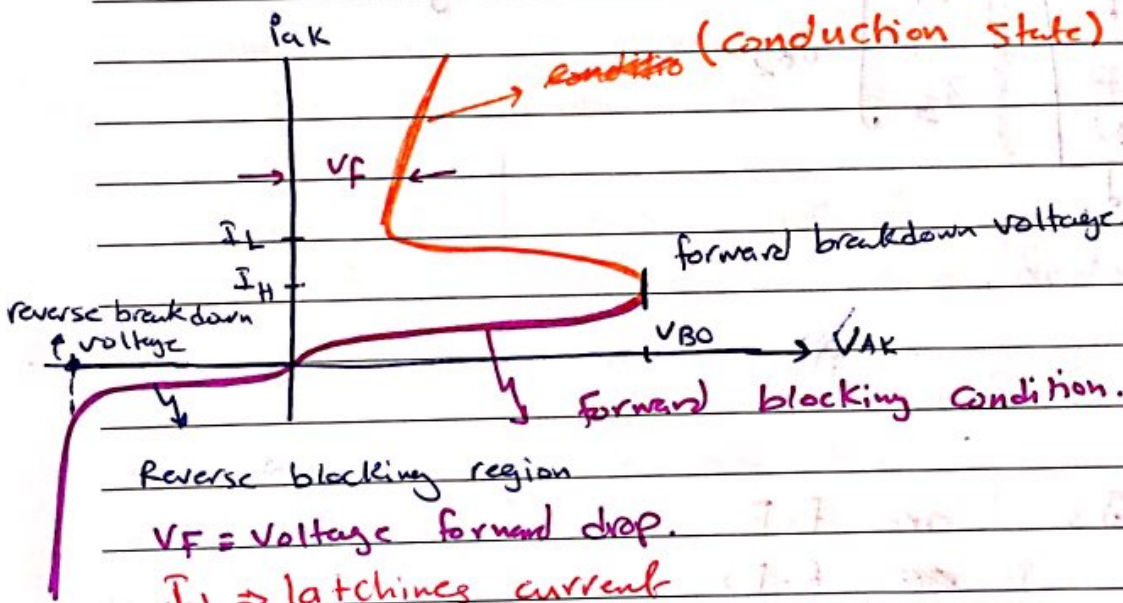 iak
(conduction state)
VF
IL
forward breakdown voltage
IH
reverse breakdown
voltage
VBO
VAK
forward blocking condition.
Reverse blocking region
VF = Voltage forward drop.
IL → latching current